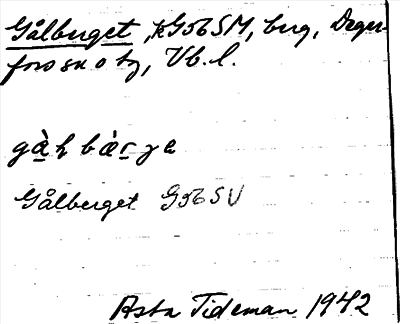 Gålberget, kG56SM, berg, Deger-
fors sn o tg, Vb. l.
gàɫbàrγe
Gålberget G56SV
Asta Tideman 1942